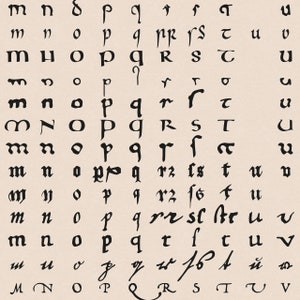 m n o p q r s t u
m n o p q pr ſs t u v
M H O P q R S T U
m n o p q r s t o
m n o p q r ſ t v
M N O P Q R S T U
m n o p q r ſ t u
m n o pp q rz ſs t u v
m n o p q rz ſs t u
m n o p q rz sſ ſt u v
m n o p q r t u v
m u o p q r ſs t u v
M N O P Q R S T U V